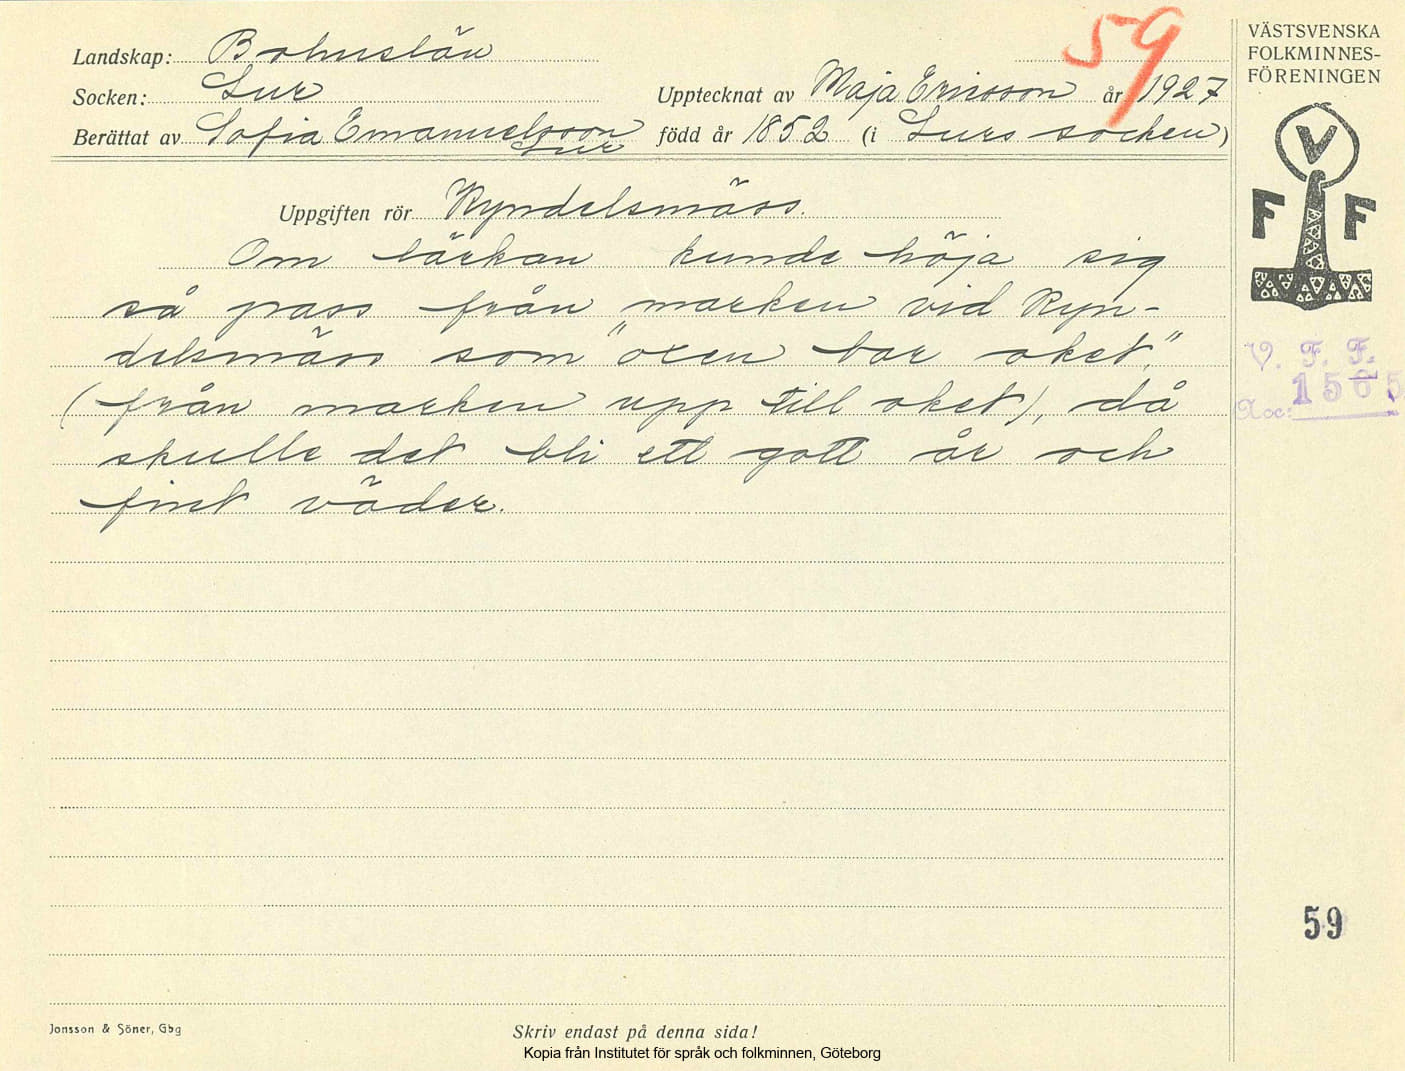 59
VÄSTSVENSKA
FOLKMINNES-
FÖRENINGEN
Landskap: Bohuslän
Socken: Lur
Upptecknat av Maja Ericsson år 1927
Berättat av Sofia Emanuelsson
Lur
född år 1852 (i Lurs socken)
V
F F
Uppgiften rör Kyndelsmäss.
Om lärkan kunde höja sig
så pass från marken vid Kyn-
delsmäss som "oxen bar oket",
(från marken upp till oket), då
skulle det bli ett gott år och
fint väder.
V. F. F.
Acc: 1565
59
Jonsson & Söner, Gbg
Skriv endast på denna sida!
Kopia från Institutet för språk och folkminnen, Göteborg